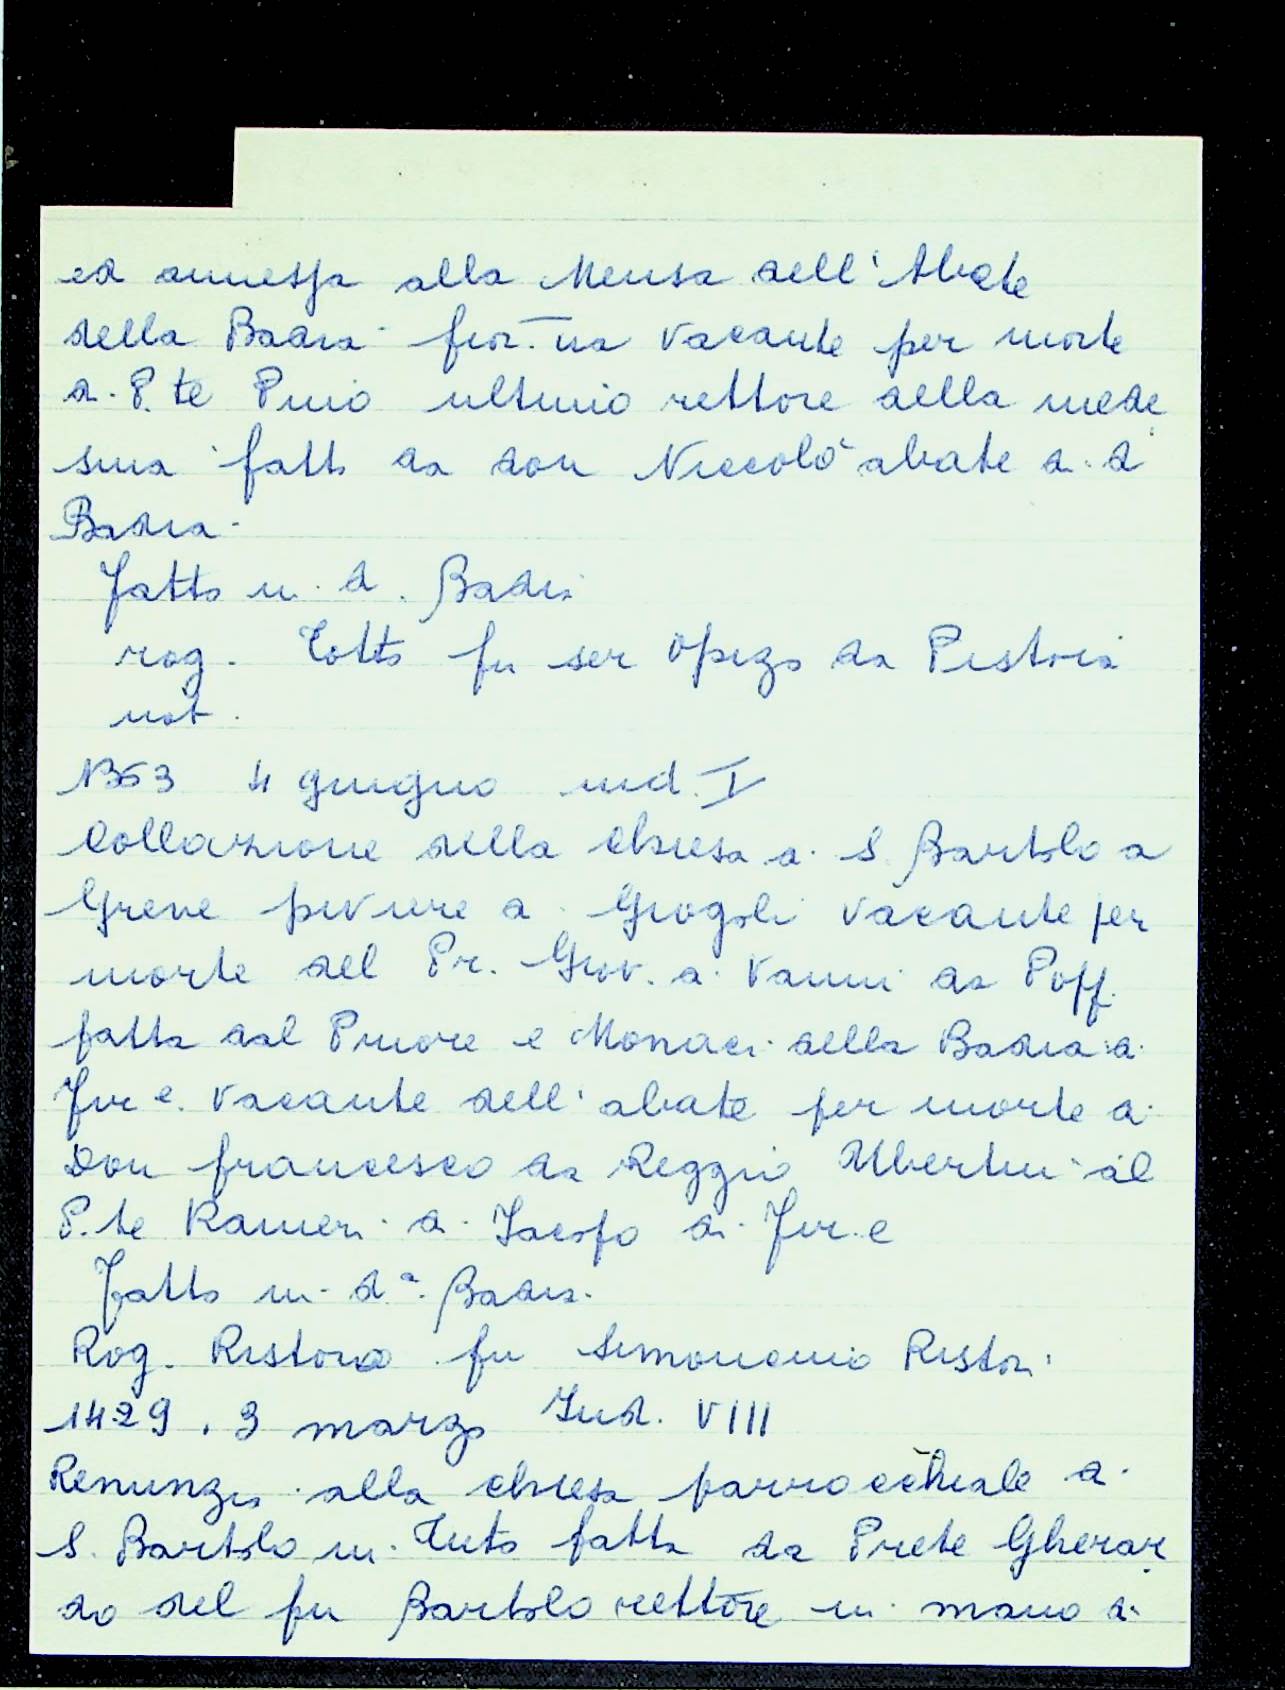 ed annessa alla Mensa dell'Abate
della Badia fior.na vacante per morte
di P.te Pino ultimo rettore della mede
sima fatta da don Niccolò abate di d
Badia
Fatto in d. Badia
rog. Totto fu ser Opizo da Pistoia
not.
1363 4 giugno ind. I
Collazione della Chiesa di S. Bartolo a
Greve piviere di Giogoli vacante per
morte del Pr. Giov. di Vanni da Pogg.
fatta dal Priore e Monaci della Badia di
Fir e. vacante dell'abate per morte di
Don Francesco da Reggio Ubertini al
P.te Ranieri di Jacopo di Fir.e
Fatto in d.a Badia.
Rog. Ristoro fu Ser Ristori
1429. 3 marzo Ind. VIII
Renunzia alla chiesa parrocchiale di
S. Bartolo in Tuto fatta da Prete Gherar
do del fu Bartolo rettore in mano di